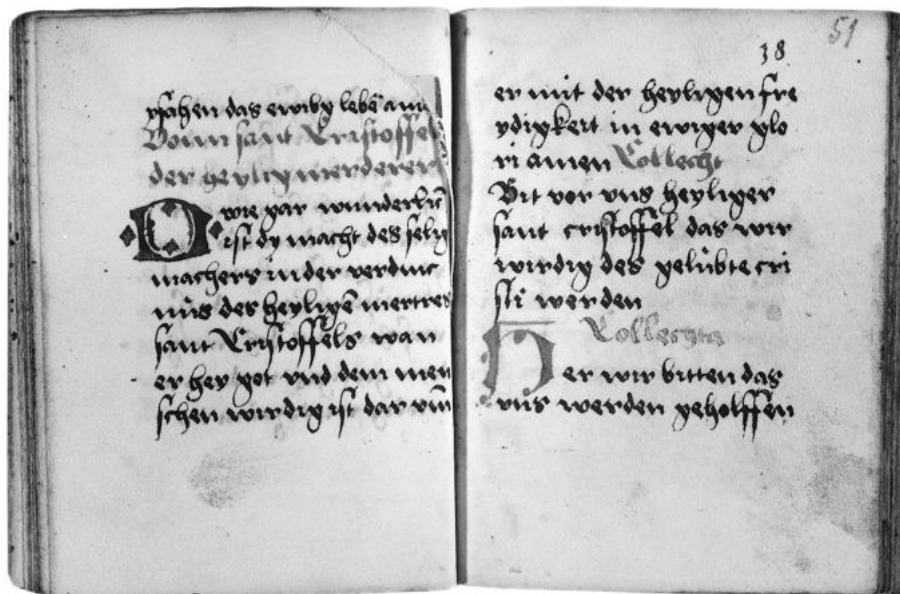 pfahen das ewihg lebē amē
Vonn sant Cristoffel
der heylig merderer
O wie gar wunderlich
ist dy macht des selig
machers in der verdinc
nüs des heyligē mertres
sant Cristoffels wan
er hey got vnd dem men
schen wirdig ist dar vm
51
38
er mit der heyligen fre
ydigkeit in ewiger glo
ri amen Collecht
Bit vor vns heyliger
sant cristoffel das wir
wirdig des gelübte cri
sti werden
Collechta
H er wir bitten das
vns werden geholffen